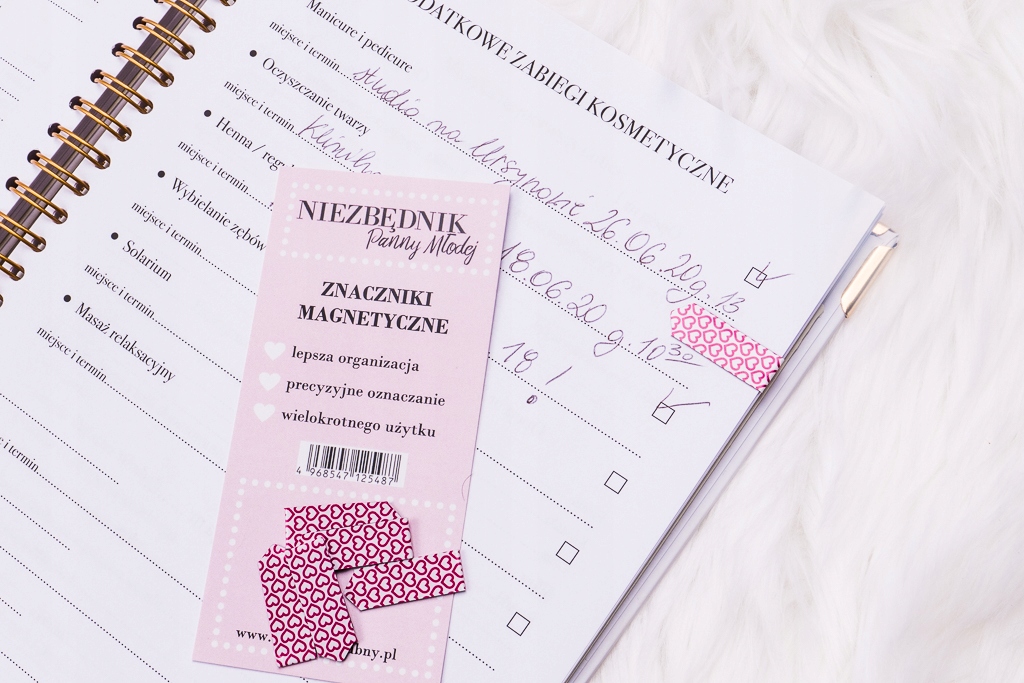 DODATKOWE ZABIEGI KOSMETYCZNE
Manicure i pedicure
miejsce i termin studio na Ursynowie 26.06.20 g. 13
Oczyszczanie twarzy
miejsce i termin 18.06.20 g. 10 30
Henna /
miejsce i termin 18!
Wybielanie zębów
miejsce i termin
Solarium
miejsce i termin
Masaż relaksacyjny
miejsce i termin
termin
NIEZBĘDNIK
Panny Młodej
ZNACZNIKI
MAGNETYCZNE
lepsza organizacja
precyzyjne oznaczanie
wielokrotnego użytku
4 968547 125487
www.
.pl